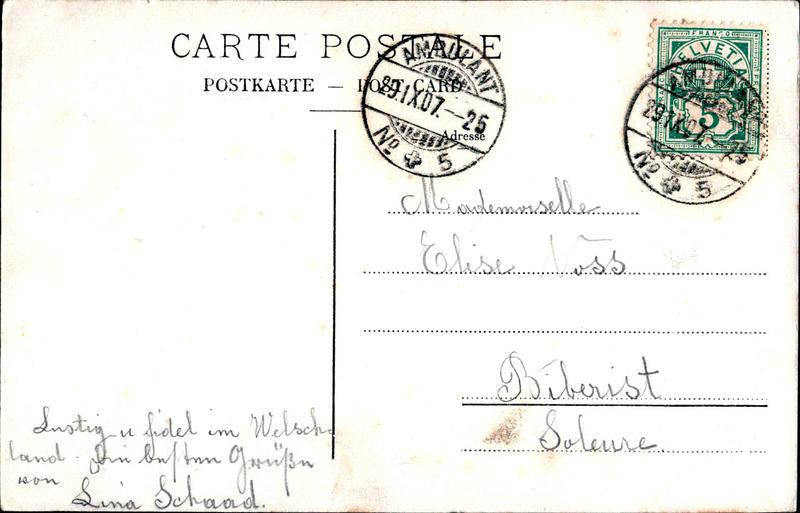 CARTE POSTALE
POSTKARTE — POST CARD
AMBULANT
29.IX.07.—25
No 5
FRANCO
HELVETIA
5
AMBULANT
29.IX.07.—25
No 5
Adresse
Mademoiselle
Elise Voss
Biberist
Soleure.
Lustig u fidel im Welsch-
land. Die besten Grüße
von
Lina Schaad.